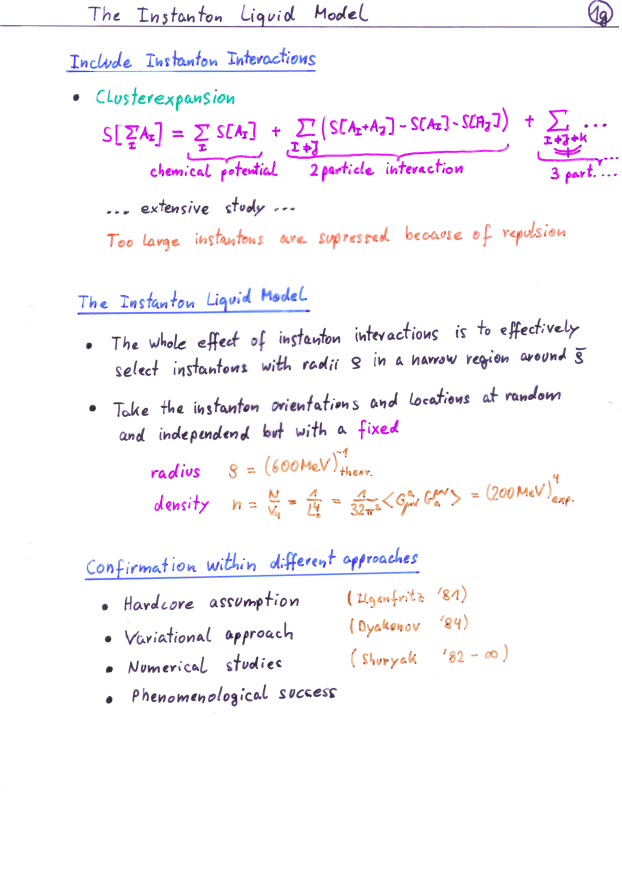 The Instanton Liquid Model 19
Include Instanton Interactions
• Clusterexpansion
S[∑_I A_I] = ∑_I S[A_I] + ∑_{I≠J} (S[A_I+A_J] - S[A_I] - S[A_J]) + ∑_{I≠J≠K} ...
chemical potential 2 particle interaction 3 part. ...
... extensive study ...
Too large instantons are supressed because of repulsion
The Instanton Liquid Model
• The whole effect of instanton interactions is to effectively
select instantons with radii ρ in a narrow region around ρ̄
• Take the instanton orientations and locations at random
and independend but with a fixed
radius ρ = (600 MeV)^{-1}_{theor.}
density n = N/V_4 = 1/L_0^4 = 1/32π² <G^a_{μν} G_a^{μν}> = (200 MeV)^4_{exp.}
Confirmation within different approaches
• Hardcore assumption (Ilgenfritz '81)
• Variational approach (Dyakonov '84)
• Numerical studies (Shuryak '82 - ∞)
• Phenomenological success